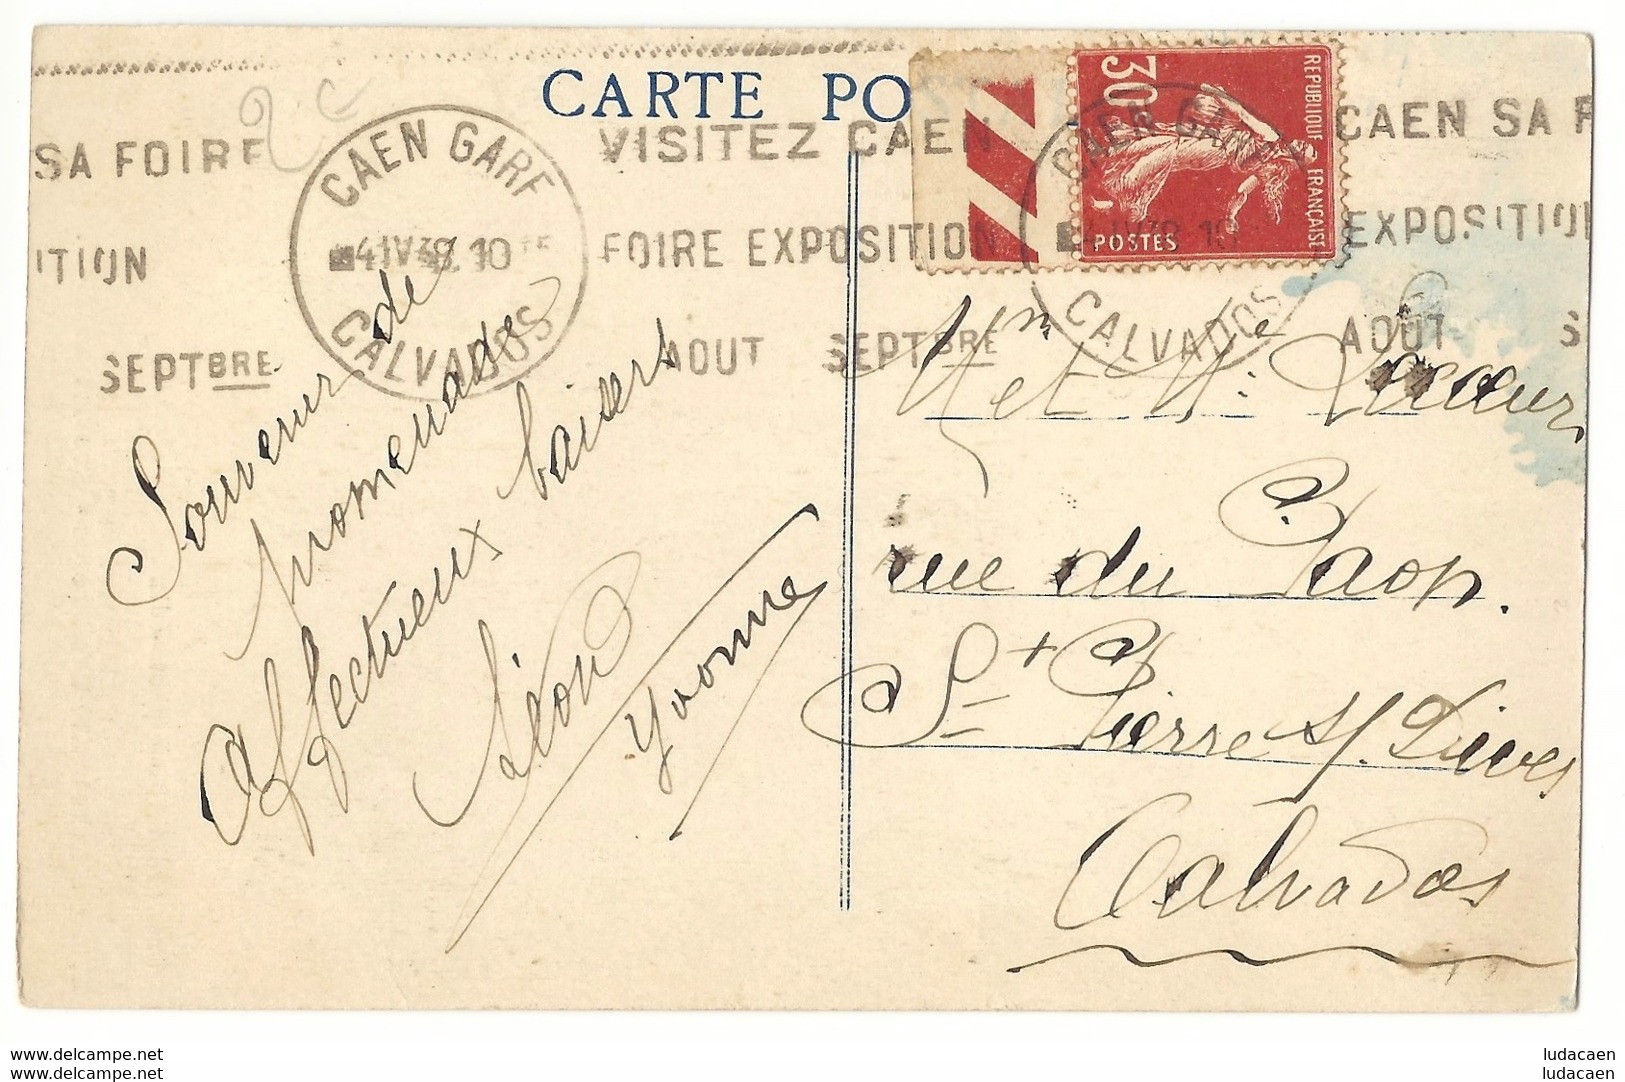 CARTE PO
SA FOIRE
ITION
SEPTBRE
CAEN GARE
4 IV 38 10
CALVADOS
VISITEZ CAEN
FOIRE EXPOSITION
AOUT SEPTBRE
30
REPUBLIQUE FRANÇAISE
POSTES
CAEN GARE
4 IV 38 10
CALVADOS
CAEN SA F
EXPOSITION
AOUT S
Souvenir de
promenade
Affectueux baisers
Léon
Yvonne
Mr et Mme Lecœur
rue du Paon.
St Pierre s/ Dives
Calvados
www.delcampe.net
www.delcampe.net
ludacaen
ludacaen